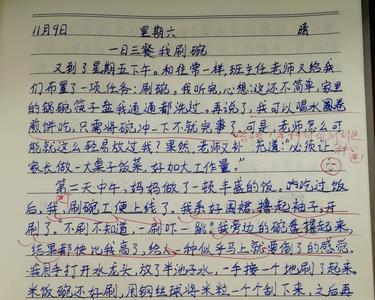 11月9日 星期六 晴
一日三餐 我刷碗
又到了星期五下午。和往常一样,班主任老师又给我
们布置了一项任务:刷碗。我听完,心想:这还不简单,家里
的锅碗筷子盘我通通都洗过。再说了,我可以喝水
煎饼吃,只需将碗冲一下不就完事了。可是,老师怎么可
能就这么轻易放过我?果然,老师又补充道:“必须让
家长做一大桌子饭菜,好加大工作量。”
第二天中午,妈妈做了一顿丰盛的饭。吃过饭
后,我刷碗工便上线了。我系好围裙,撸起袖子,开
刷了。不刷不知道,一刷吓一跳。我旁边的碗叠摞起来,
结果都快比我高了,给人一种似乎马上就要倒了的感觉。
我用手打开水龙头,放了半池子水,一手接一个地刷了起来。
米饭碗还好刷,用钢丝球将米粒一个个刮下来,之后再